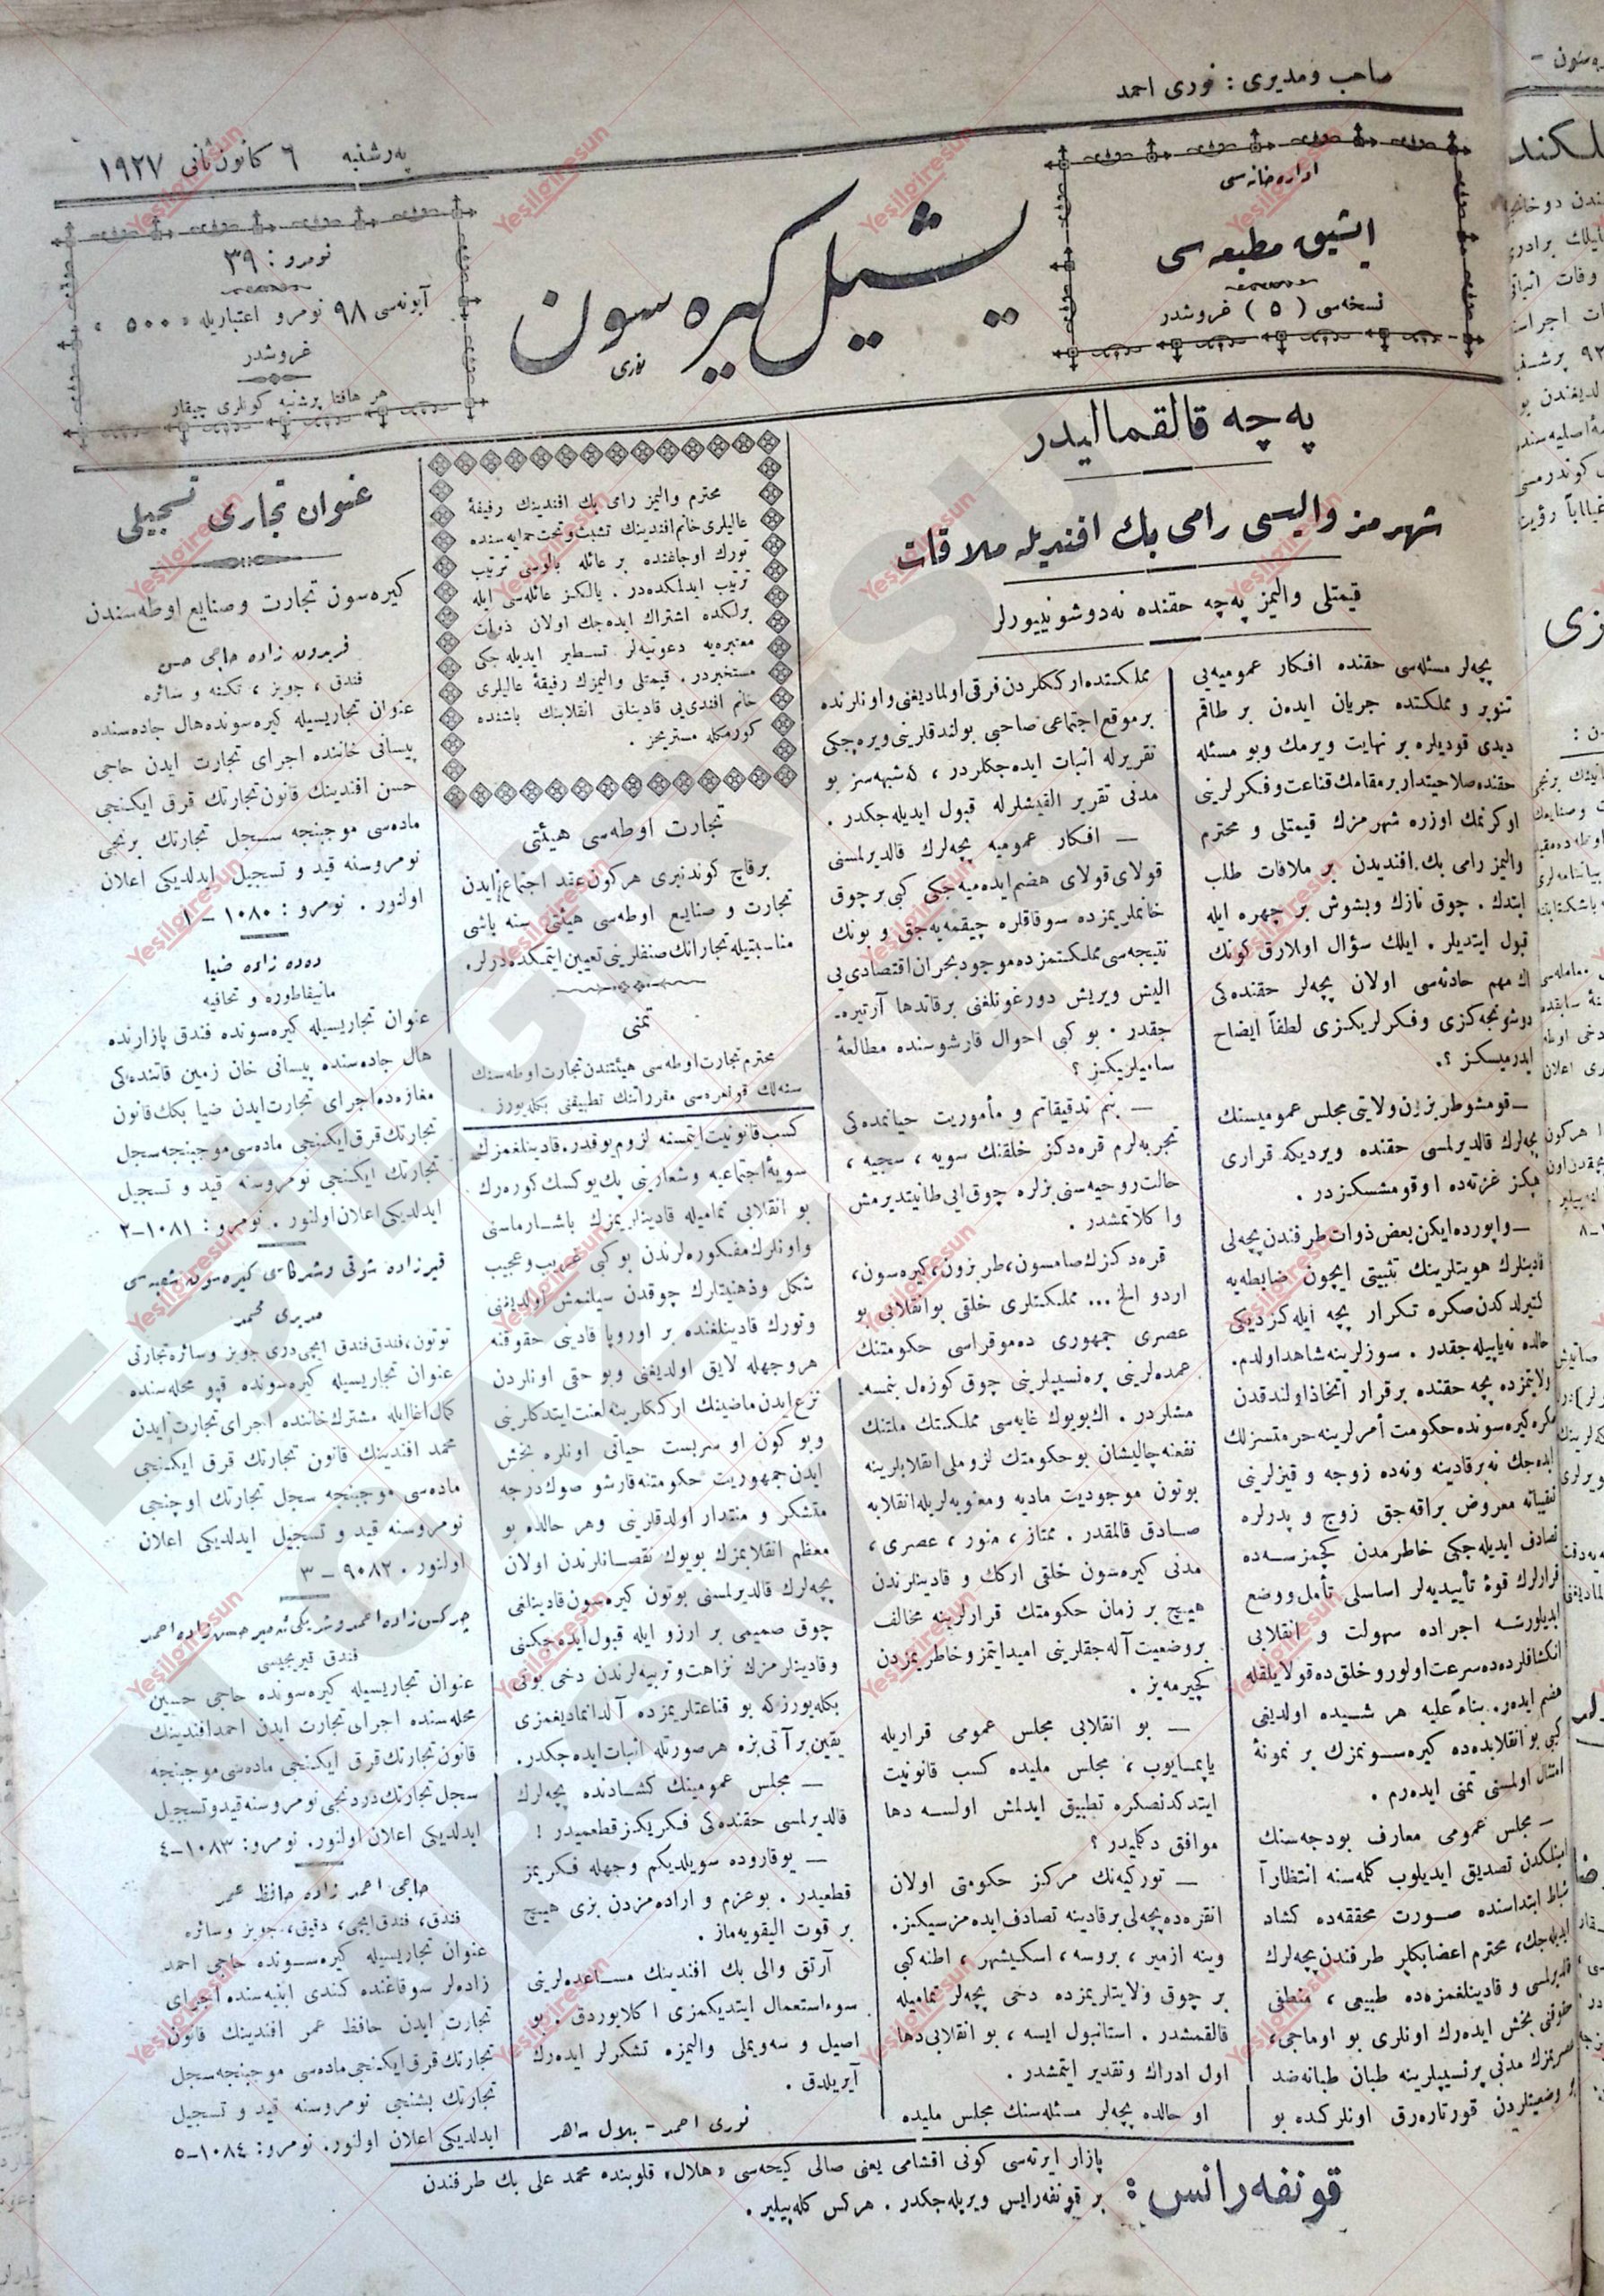 صاحب ومدیری : نوری احمد
پەرشنبه ٦ كانون ثانی ۱۹۲۷
اداره خانه سی
ایشیق مطبعه سی
نسخه سی ( ٥ ) غروشدر
یشیل كیره سون
نوری
نومرو : ۳۹
آبونه سی ۹۸ نومرو اعتباریله « ٥٠٠ »
غروشدر
هر هافتا پرشنبه كونلری چیقار
په چه قالقمالیدر
شهرمز والیسی رامی بك افندیله ملاقات
قیمتلی والیمز په چه حقنده نه دوشونییورلر
پچه لر مسئله سی حقنده افكار عمومیه یی
تنویر و مملكتده جریان ایدەن بر طاقم
دیدی قودیلره بر نهایت ویرمك وبو مسئله
حقنده صلاحیتدار بر مقامك قناعت وفكرلرینی
اوكرنمك اوزره شهرمزك قیمتلی و محترم
والیمز رامی بك افندیدن بر ملاقات طلب
ایتدك . چوق نازك وبشوش بر چهره ایله
قبول ایتدیلر . ایلك سؤال اولارق كونك
اك مهم حادثه سی اولان پچه لر حقنده كی
دوشونجه كزی وفكرلریكزی لطفاً ایضاح
ایدرمیسكز ؟.
— قومشومز طربزون ولایتی مجلس عمومیسنك
پچه لرك قالدیرلمسی حقنده ویردیكه قراری
غزته ده اوقومشسكزدر .
— واپورده ایكن بعض ذوات طرفندن پچه لی
قادینلرك هویتلرینك تثبیتی ایچون ضابطه یه
كتیرلدكدن صكره تكرار پچه ایله كزدیكی
حالده نه یاپیله جقدر . سوزلرینه شاهد اولدم.
ولایتمزده پچه حقنده بر قرار اتخاذ اولندقدن
صكره كیره سونده حكومت أمرلرینه حرمتسزلك
ایده جك نه بر قادینه ونه ده زوجه و قیزلرینی
معروض براقه جق زوج و پدرلره
تصادف ایدیله جكی خاطرمدن كچمز سه ده
قرارلرك قوۀ تأییدیه لر اساسلی تأمل ووضع
ایدیلورسه اجراده سهولت و انقلابی
انكشافلرده ده سرعت اولور و خلق ده قولایلقله
هضم ایدەر. بناءً علیه هر شیده اولدیغی
كبی بو انقلابده ده كیره سونمزك بر نمونۀ
امتثال اولمسنی تمنی ایدەرم .
— مجلس عمومی معارف بودجه سنك
تصدیق ایدیلوب كلمه سنه انتظاراً
شباط ابتداسنده صورت محققه ده كشاد
ایدیله جك، محترم اعضا بكلر طرفندن پچه لرك
قالدیرلمسی و قادینلغمزه ده طبیعی ، منطقی
حقوقنی بخش ایدەرك اونلری بو اوماجی،
عصریمزك مدنی پرنسیپلرینه طبان طبانه ضد
وضعیتلردن قورتاره رق اونلركده بو
مملكتده ارككلردن فرقی اولمادیغنی و اونلرنده
بر موقع اجتماعی صاحبی بولندقلرینی ویره چكی
تقریرله اثبات ایده جكلردر ، كه شبهه سز بو
مدنی تقریر الفیشلرله قبول ایدیله جكدر .
— افكار عمومیه پچه لرك قالدیرلمسنی
قولای قولای هضم ایده میه جكی كبی بر چوق
خانملریمزده سوقاقلره چیقمه یه جق و بونك
نتیجه سی مملكتمزده موجود بحران اقتصادی یی
الیش ویریش دورغونلغنی بر قاتدها آرتیره-
جقدر . بو كبی احوال قارشوسنده مطالعۀ
سامیلریكز ؟
— بنم تدقیقاتم و مأموریت حیاتمده كی
تجربه لرم قره دكز خلقنك سویه ، سجیه ،
حالت روحیه سنی بزلره چوق ایی طانیتدیرمش
واكلاتمشدر .
قره دكزك صامسون، طربزون، كیره سون،
اردو الخ ... مملكتلری خلقی بو انقلابی بو
عصری جمهوری ده موقراسی حكومتنك
عمده لرینی پره نسیپلرینی چوق كوزەل بنمسه-
مشلردر . اك بویوك غایه سی مملكتك ملتنك
نفعنه چالیشان بو حكومتك لزوملی انقلابلرینه
بوتون موجودیت مادیه و معنویه لریله انقلابه
صادق قالمقدر . ممتاز ، منور ، عصری ،
مدنی كیره سون خلقی اركك و قادینلرندن
هیچ بر زمان حكومتك قرارلرینه مخالف
بر وضعیت آله جقلرینی امید ایتمز و خاطریمزدن
كچیرمه یز .
— بو انقلابی مجلس عمومی قراریله
یاپمایوب ، مجلس ملیده كسب قانونیت
ایتدكدنصكره تطبیق ایدلمش اولسه دها
موافق دكلیدر ؟
— توركیه نك مركز حكومتی اولان
انقره ده پچه لی بر قادینه تصادف ایده مزسیكز.
وینه ازمیر ، بروسه ، اسكیشهر ، اطنه كبی
بر چوق ولایتلریمزده دخی پچه لر تمامیله
قالقمشدر . استانبول ایسه ، بو انقلابی دها
اول ادراك و تقدیر ایتمشدر .
او حالده پچه لر مسئله سنك مجلس ملیده
كسب قانونیت ایتمسنه لزوم یوقدر. قادینلغمزك
سویۀ اجتماعیه و شعارینی پك یوكسك كوره رك
بو انقلابی تمامیله قادینلریمزك باشارماسنی
و اونلرك مفكوره لرندن بو كبی غریب و عجیب
شكل و ذهنیتلرك چوقدن سیلنمش اولدیغنی
و تورك قادینلغنده بر اوروپا قادینی حقوقنه
هر وجهله لایق اولدیغنی و بو حقی اونلردن
نزع ایدن ماضینك ارككلرینه لعنت ایتدكلرینی
و بو كون او سربست حیاتی اونلره بخش
ایدن جمهوریت حكومتنه قارشو صوك درجه
متشكر و منتدار اولدقلرینی وهر حالده بو
معظم انقلابمزك بویوك نقصانلرندن اولان
پچه لرك قالدیرلمسنی بوتون كیره سون قادینلغی
چوق صمیمی بر ارزو ایله قبول ایده جكنی
و قادینلرمزك نزاهت و تربیه لرندن دخی بونی
بكله یورزكه بو قناعتلریمزده آلدانمادیغمزی
یقین بر آتی بزه هر صورتله اثبات ایده جكدر.
— مجلس عمومینك كشادنده پچه لرك
قالدیرلمسی حقنده كی فكریكز قطعمیدر !
— یوقاروده سویلدیكم وجهله فكریمز
قطعیدر . بو عزم و اراده مزدن بزی هیچ
بر قوت الیقویه ماز .
آرتق والی بك افندینك مساعده لرینی
سوءاستعمال ایتدیكمزی اكلایوردق . بو
اصیل و سه ویملی والیمزه تشكرلر ایدەرك
آیریلدق .
نوری احمد - بلال ماهر
محترم والیمز رامی بك افندینك رفیقۀ
عالیلری خانم افندینك تشبث و تحت حمایه سنده
تورك اوجاغنده بر عائله بالوسی ترتیب
ترتیب ایدلمكده در . یالكز عائله سی ایله
برلكده اشتراك ایده جك اولان ذوات
معتبره یه دعوتیه لر تسطیر ایدیله جكی
مستخبردر . قیمتلی والیمزك رفیقۀ عالیلری
خانم افندی یی قادینلق انقلابنك باشنده
كورمكله مستریحز .
تجارت اوطه سی هیئتی
بر قاچ كوندنبری هر كون عقد اجتماع ایدن
تجارت و صنایع اوطه سی هیئتی سنه باشی
مناسبتیله تجارانك صنفلرینی تعیین ایتمكده درلر.
تمنی
محترم تجارت اوطه سی هیئتندن تجارت اوطه سنك
سنه لك قونغره سی مقرراتنك تطبیقنی بكله یورز .
عنوان تجاری تسجیلی
كیره سون تجارت و صنایع اوطه سندن
فریدون زاده حاجی حسن
فندق ، جویز ، تكنه و سائره
عنوان تجاریسیله كیره سونده هال جاده سنده
پیسانی خاننده اجرای تجارت ایدن حاجی
حسن افندینك قانون تجارتك قرق ایكنجی
ماده سی موجبنجه سجل تجارتك برنجی
نومروسنه قید و تسجیل ایدلدیكی اعلان
اولنور . نومرو : ۱۰۸۰ – ۱
دەدە زاده ضیا
مانیفاطوره و تحافیه
عنوان تجاریسیله كیره سونده فندق پازارنده
هال جاده سنده پیسانی خان زمین قاتنده كی
مغازه ده اجرای تجارت ایدن ضیا بكك قانون
تجارتك قرق ایكنجی ماده سی موجبنجه سجل
تجارتك ایكنجی نومروسنه قید و تسجیل
ایدلدیكی اعلان اولنور . نومرو : ۱۰۸۱–۲
شوقی وشركاسی كیره سون شعبه سی
مدیری محمد
توتون، فندق فندق ایچی دری جویز و سائره تجارتی
عنوان تجاریسیله كیره سونده قپو محله سنده
كمال اغا ایله مشترك خاننده اجرای تجارت ایدن
محمد افندینك قانون تجارتك قرق ایكنجی
ماده سی موجبنجه سجل تجارتك اوچنجی
نومروسنه قید و تسجیل ایدلدیكی اعلان
اولنور . ۹۰۸۲ – ۳
چركس زاده احمد و شریكی زاده احمد
فندق قیریجیسی
عنوان تجاریسیله كیره سونده حاجی حسین
محله سنده اجرای تجارت ایدن احمد افندینك
قانون تجارتك قرق ایكنجی ماده سی موجبنجه
سجل تجارتك دردنجی نومروسنه قید و تسجیل
ایدلدیكی اعلان اولنور. نومرو: ۱۰۸۳–٤
حاجی احمد زاده حافظ عمر
فندق، فندق ایچی، دقیق، جویز و سائره
عنوان تجاریسیله كیره سونده حاجی احمد
زاده لر سوقاغنده كندی ابنیه سنده اجرای
تجارت ایدن حافظ عمر افندینك قانون
تجارتك قرق ایكنجی ماده سی موجبنجه سجل
تجارتك بشنجی نومروسنه قید و تسجیل
ایدلدیكی اعلان اولنور. نومرو: ۱۰۸٤–٥
قونفه رانس :
پازار ایرته سی كونی اقشامی یعنی صالی كیجه سی « هلال » قلوبنده محمد علی بك طرفندن
بر قونفه رایس ویریله جكدر . هر كس كله بیلیر .